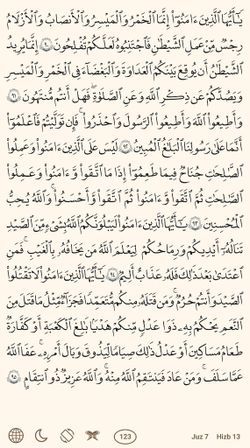 يَـٰٓأَيُّهَا ٱلَّذِينَ ءَامَنُوٓا۟ إِنَّمَا ٱلْخَمْرُ وَٱلْمَيْسِرُ وَٱلْأَنصَابُ وَٱلْأَزْلَـٰمُ
رِجْسٌ مِّنْ عَمَلِ ٱلشَّيْطَـٰنِ فَٱجْتَنِبُوهُ لَعَلَّكُمْ تُفْلِحُونَ ٩٠ إِنَّمَا يُرِيدُ
ٱلشَّيْطَـٰنُ أَن يُوقِعَ بَيْنَكُمُ ٱلْعَدَٰوَةَ وَٱلْبَغْضَآءَ فِى ٱلْخَمْرِ وَٱلْمَيْسِرِ
وَيَصُدَّكُمْ عَن ذِكْرِ ٱللَّهِ وَعَنِ ٱلصَّلَوٰةِ ۖ فَهَلْ أَنتُم مُّنتَهُونَ ٩١
وَأَطِيعُوا۟ ٱللَّهَ وَأَطِيعُوا۟ ٱلرَّسُولَ وَٱحْذَرُوا۟ ۚ فَإِن تَوَلَّيْتُمْ فَٱعْلَمُوٓا۟
أَنَّمَا عَلَىٰ رَسُولِنَا ٱلْبَلَـٰغُ ٱلْمُبِينُ ٩٢ لَيْسَ عَلَى ٱلَّذِينَ ءَامَنُوا۟ وَعَمِلُوا۟
ٱلصَّـٰلِحَـٰتِ جُنَاحٌ فِيمَا طَعِمُوٓا۟ إِذَا مَا ٱتَّقَوا۟ وَّءَامَنُوا۟ وَعَمِلُوا۟
ٱلصَّـٰلِحَـٰتِ ثُمَّ ٱتَّقَوا۟ وَّءَامَنُوا۟ ثُمَّ ٱتَّقَوا۟ وَّأَحْسَنُوا۟ ۗ وَٱللَّهُ يُحِبُّ
ٱلْمُحْسِنِينَ ٩٣ يَـٰٓأَيُّهَا ٱلَّذِينَ ءَامَنُوا۟ لَيَبْلُوَنَّكُمُ ٱللَّهُ بِشَىْءٍ مِّنَ ٱلصَّيْدِ
تَنَالُهُۥٓ أَيْدِيكُمْ وَرِمَاحُكُمْ لِيَعْلَمَ ٱللَّهُ مَن يَخَافُهُۥ بِٱلْغَيْبِ ۚ فَمَنِ
ٱعْتَدَىٰ بَعْدَ ذَٰلِكَ فَلَهُۥ عَذَابٌ أَلِيمٌ ٩٤ يَـٰٓأَيُّهَا ٱلَّذِينَ ءَامَنُوا۟ لَا تَقْتُلُوا۟
ٱلصَّيْدَ وَأَنتُمْ حُرُمٌ ۚ وَمَن قَتَلَهُۥ مِنكُم مُّتَعَمِّدًا فَجَزَآءٌ مِّثْلُ مَا قَتَلَ مِنَ
ٱلنَّعَمِ يَحْكُمُ بِهِۦ ذَوَا عَدْلٍ مِّنكُمْ هَدْيًۢا بَـٰلِغَ ٱلْكَعْبَةِ أَوْ كَفَّـٰرَةٌ
طَعَامُ مَسَـٰكِينَ أَوْ عَدْلُ ذَٰلِكَ صِيَامًا لِّيَذُوقَ وَبَالَ أَمْرِهِۦ ۗ عَفَا ٱللَّهُ
عَمَّا سَلَفَ ۚ وَمَنْ عَادَ فَيَنتَقِمُ ٱللَّهُ مِنْهُ ۗ وَٱللَّهُ عَزِيزٌ ذُو ٱنتِقَامٍ ٩٥
123 Juz 7 Hizb 13